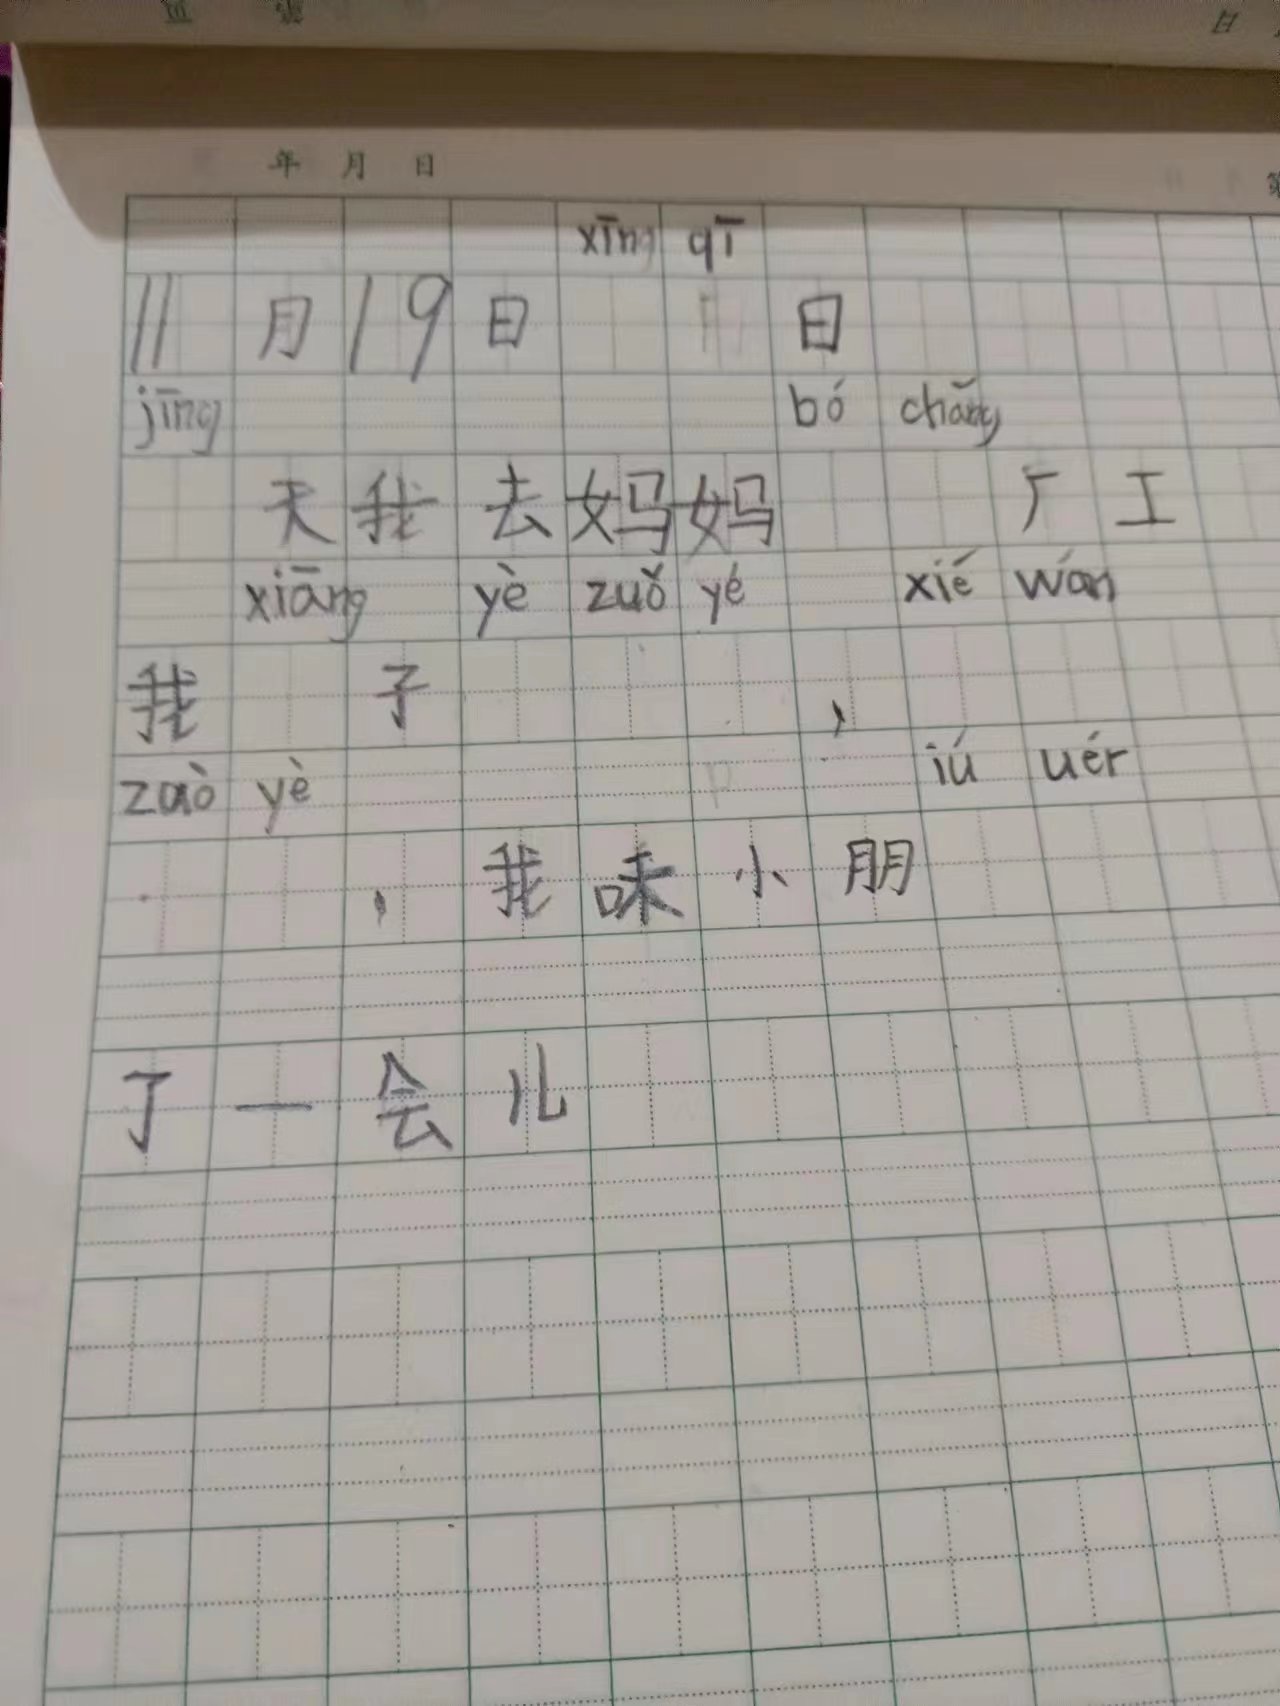 年 月 日
xīng qī
11月19日 日
jīng bó chǎng
天我去妈妈 厂工
xiāng yè zuǒ yé xié wán
我 子 ，
zaò yè iú uér
， 我味小朋
了一会儿